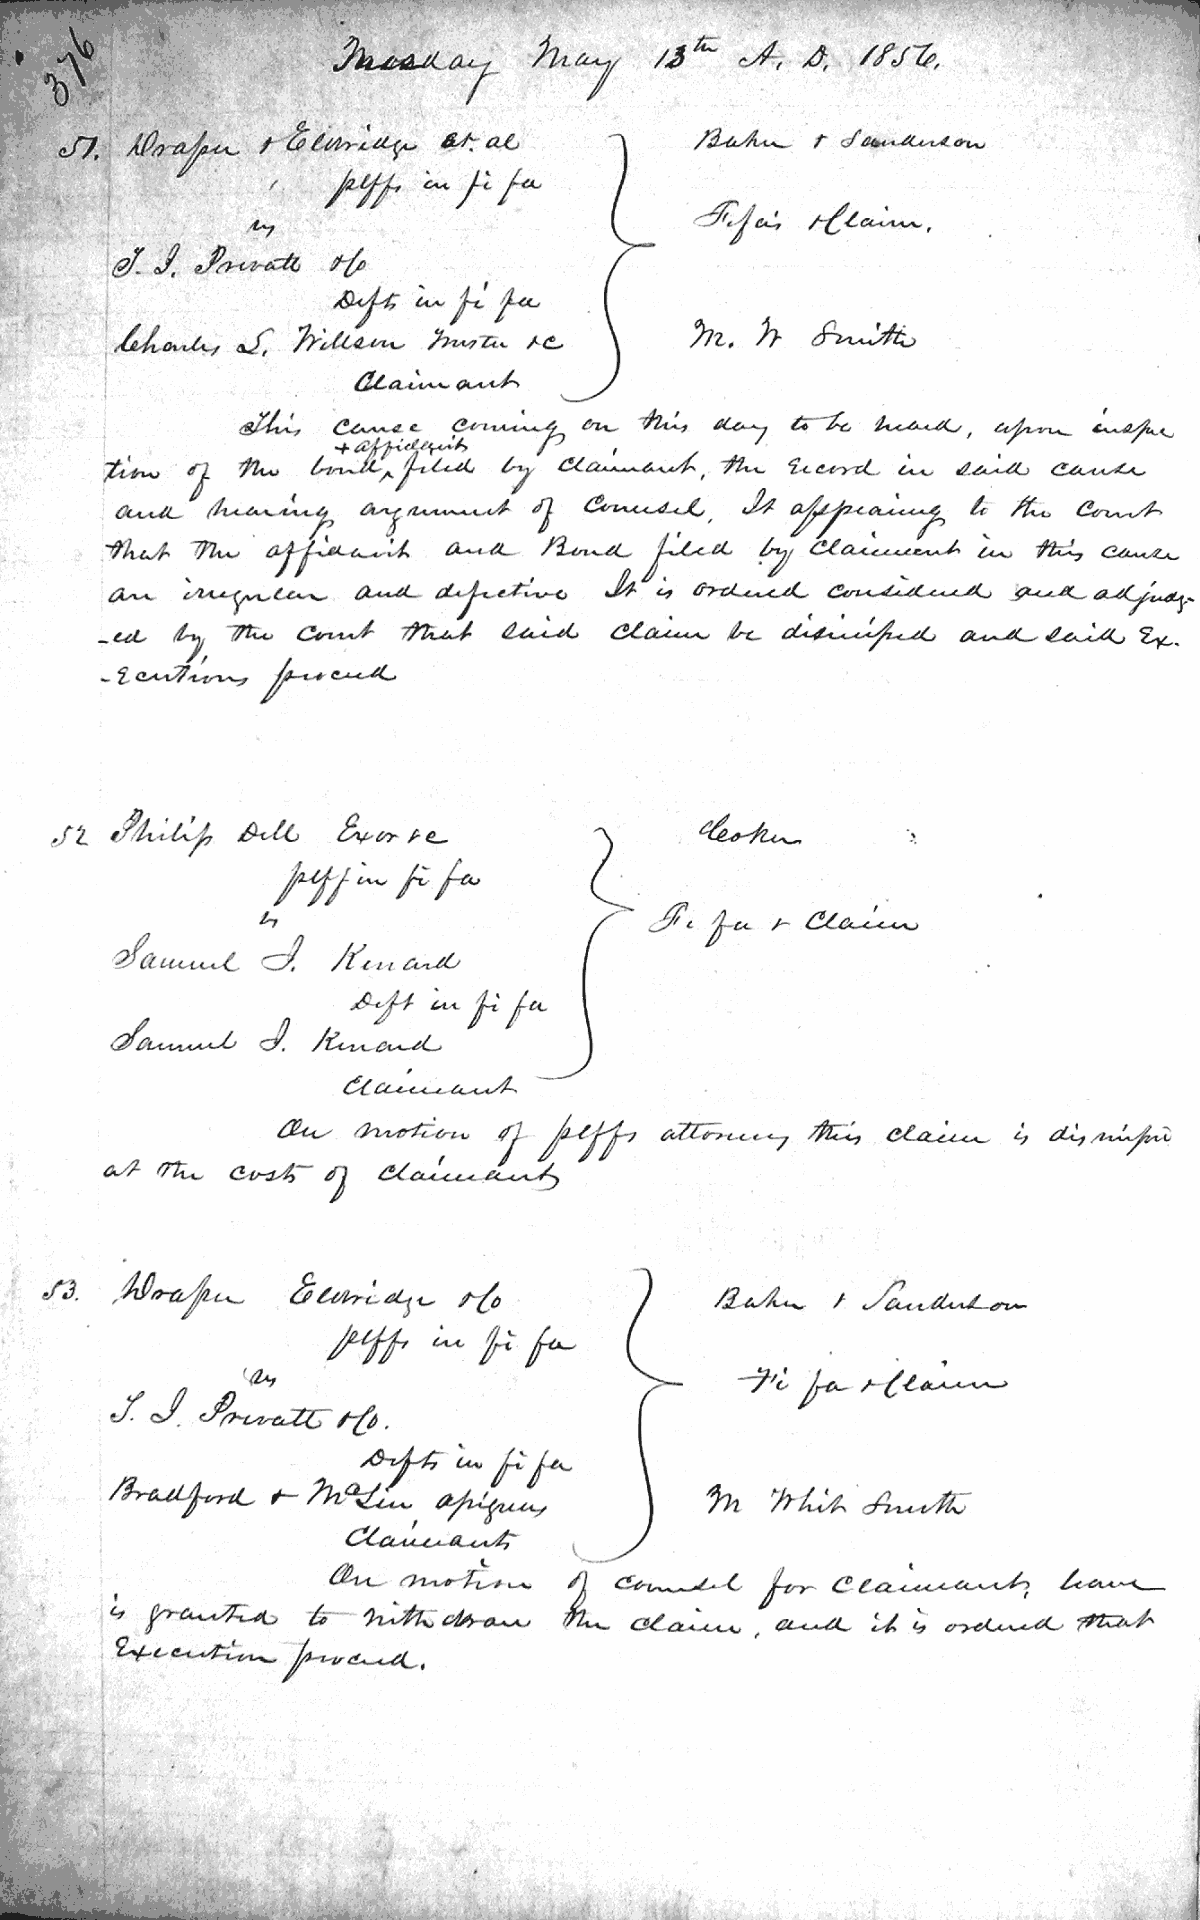 376
Tuesday May 13th A. D. 1856.
51. Draper & Eldridge et. al
plffs in fi fa
vs
T. I. Privatt &Co
Defts in fi fa
Charles L. Willson Trustee &c
Claimant
Baker & Sanderson
Fi fas &Claim.
M. W Smith
This cause coming on this day to be heard, upon inspec
+ affidavit
tion of the bond ^ filed by claimant, the record in said cause
and hearing argument of Counsel, It appearing to the Court
that the affidavit and Bond filed by claimant in this cause
are irregular and defective It is ordered considered and adjudg-
-ed by the court that said claim be dismissed and said Ex-
-ecutions proceed
52 Philip Dell Exor &c
plff in fi fa
vs
Samuel J. Kenard
Deft in fi fa
Samuel J. Kenard
Claimant
Coker
Fi fa & Claim
On motion of plffs attorney this claim is dismissed
at the costs of claimants
53. Draper Eldridge &Co
plffs in fi fa
vs
T. I. Privatt &Co.
Defts in fi fa
Bradford & McLin assignees
Claimants
Baker & Sanderson
Fi fa &Claim
M Whit Smith
On motion of counsel for Claimants, leave
is granted to withdraw the claim, and it is ordered that
Execution proceed.